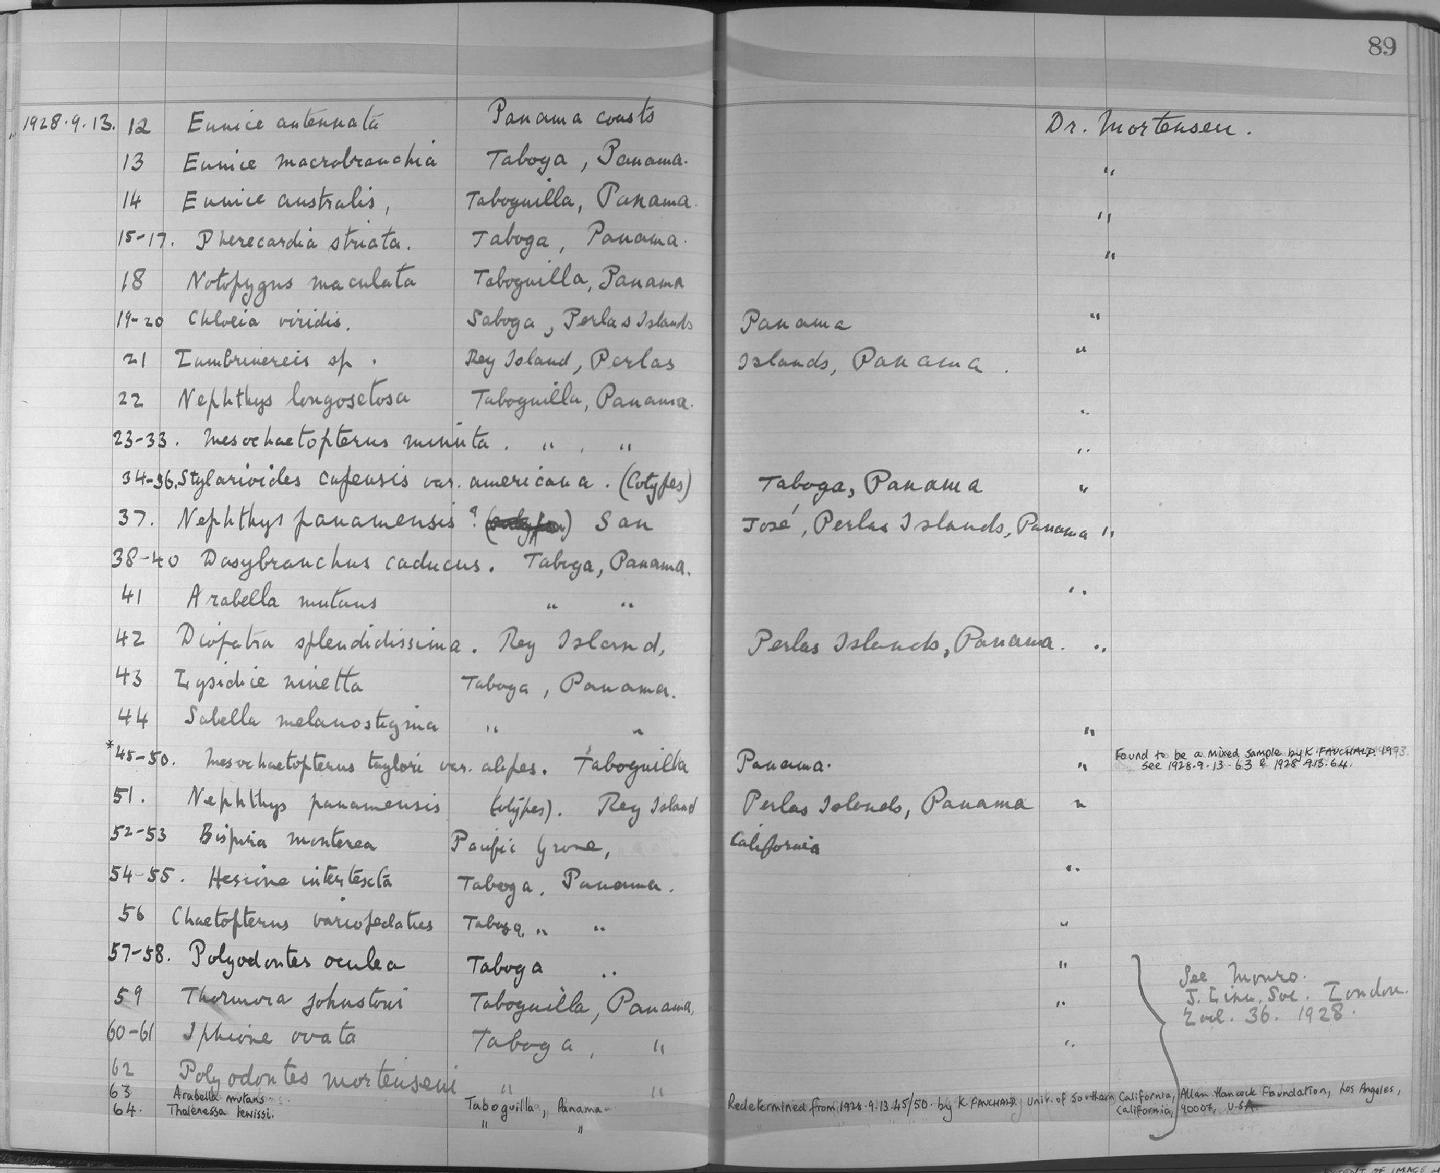 89
1928.9.13. 12 Eunice antennata Panama coasts Dr. Mortensen.
13 Eunice macrobranchia Taboga, Panama. "
14 Eunice australis, Taboguilla, Panama. "
15-17. Pherecardia striata. Taboga, Panama. "
18 Notopygus maculata Taboguilla, Panama
19-20 Chloeia viridis. Saboga, Perlas Islands Panama "
21 Lumbrinereis sp. Rey Island, Perlas Islands, Panama. "
22 Nephthys longosetosa Taboguilla, Panama. "
23-33. Mesochaetopterus minuta. " " "
34-36. Stylarioides capensis var. americana. (Cotypes) Taboga, Panama "
37. Nephthys panamensis ? San José, Perlas Islands, Panama "
38-40 Dasybranchus caducus. Taboga, Panama.
41 Arabella mutans " " "
42 Diopatra splendidissima. Rey Island, Perlas Islands, Panama. "
43 Lysidice ninetta Taboga, Panama.
44 Sabella melanostigma " " "
*45-50. Mesochaetopterus taylori var. alipes. Taboguilla Panama. " Found to be a mixed sample by K. FAUCHALD. 1993.
see 1928.9.13.63 & 1928.9.13.64.
51. Nephthys panamensis (cotypes). Rey Island Perlas Islands, Panama "
52-53 Bispira monterea Pacific Grove, California
54-55. Hesione intertexta Taboga, Panama. "
56 Chaetopterus variopedatus Taboga, " " "
57-58. Polyodontes oculea Taboga " "
59 Thormora johnstoni Taboguilla, Panama. "
60-61 Iphione ovata Taboga, " "
See Monro.
J. Linn. Soc. London.
Zool. 36. 1928.
62 Polyodontes mortenseni " "
63 Arabella mutans Taboguilla, Panama Redetermined from 1928.9.13.45/50. by K. FAUCHALD, Univ. of Southern California, Allan Hancock Foundation, Los Angeles,
64. Thalenessa lewissi. " " California, 90007, U.S.A.